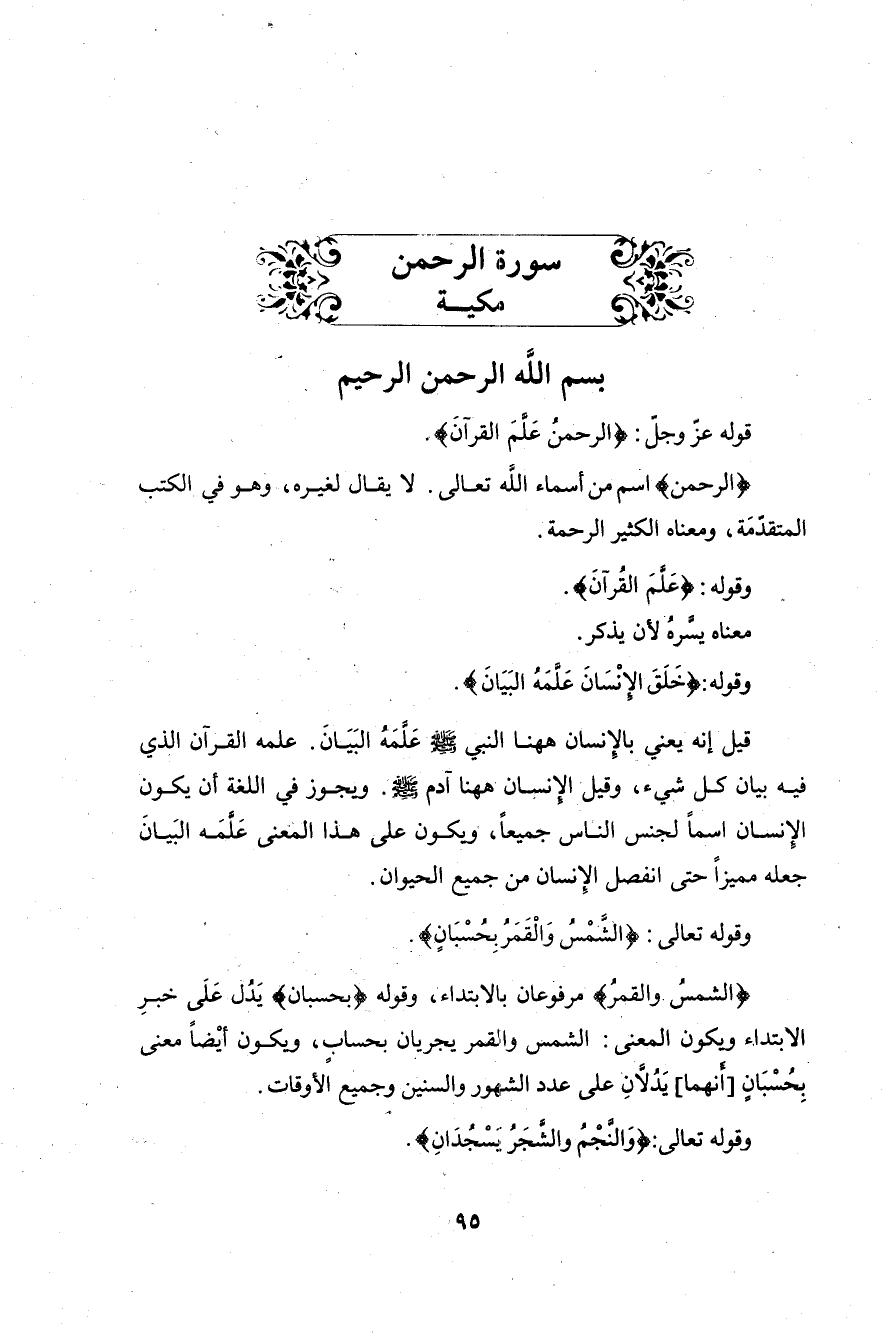 سورة الرحمن
مكيـــة
بسم اللَّه الرحمن الرحيم
قوله عزّ وجلّ: ﴿الرحمنُ عَلَّمَ القرآنَ﴾.
﴿الرحمن﴾ اسم من أسماء اللَّه تعـالى. لا يقـال لغيـره، وهـو في الكتب
المتقدّمَة، ومعناه الكثير الرحمة.
وقوله: ﴿عَلَّمَ القُرآنَ﴾.
معناه يسَّرهُ لأن يذكر.
وقوله:﴿خَلَقَ الإِنْسَانَ عَلَّمَهُ البَيَانَ﴾.
قيل إنه يعني بالإِنسان ههنـا النبي ﷺ عَلَّمَهُ البَيَـانَ. علمه القـرآن الذي
فيـه بيان كـل شيء، وقيل الإِنسـان ههنا آدم ﷺ. ويجـوز في اللغة أن يكـون
الإِنسـان اسماً لجنس النـاس جميعاً، ويكـون على هـذا المعنى عَلَّمَـه البَيـانَ
جعله مميزاً حتى انفصل الإِنسان من جميع الحيوان.
وقوله تعالى: ﴿الشَّمْسُ وَالْقَمَرُ بِحُسْبَانٍ﴾.
﴿الشمسُ والقمرُ﴾ مرفوعان بالابتداء، وقوله ﴿بحسبان﴾ يَدُل عَلَى خبـرِ
الابتداء ويكون المعنى: الشمس والقمر يجريان بحسابٍ، ويكـون أيْضاً معنى
بِحُسْبَانٍ [أَنهما] يَدُلَّانِ على عدد الشهور والسنين وجميع الأوقات.
وقوله تعالى:﴿وَالنَّجْمُ والشَّجَرُ يَسْجُدَانِ﴾.
٩٥